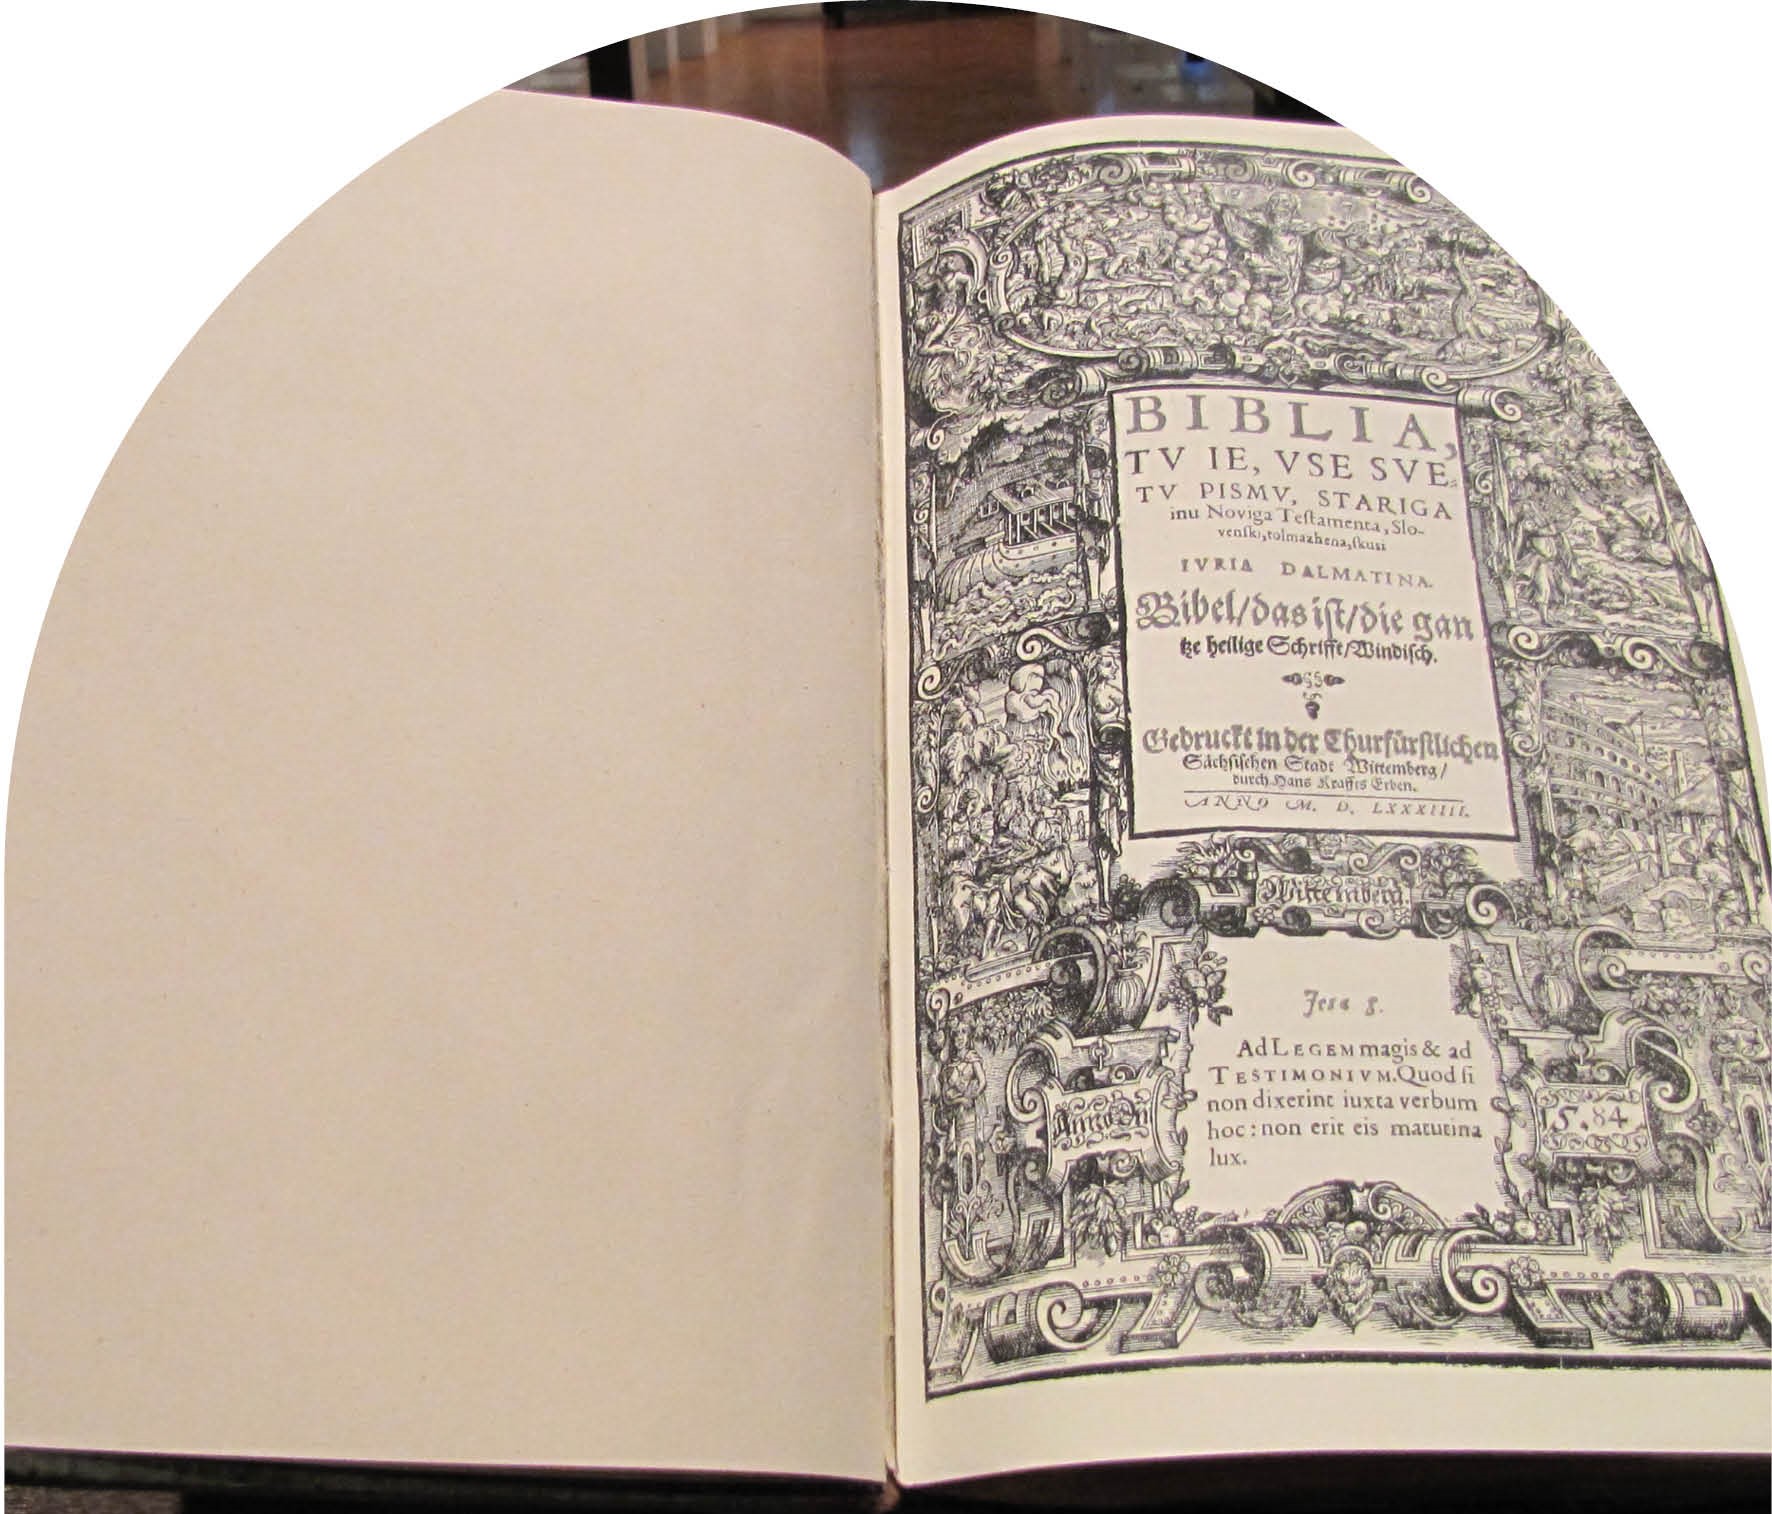 BIBLIA,
TV IE, VSE SVE-
TV PISMV, STARIGA
inu Noviga Teſtamenta, Slo-
venſki, tolmazhena, ſkusi
IVRIA DALMATINA.
Bibel/das iſt/die gan
tze heilige Schrifft/Windiſch.
Gedruckt in der Churfürſtlichen
Sächſiſchen Stadt Wittemberg/
durch Hans Kraffts Erben.
ANNO M. D. LXXXIIII.
Wittemberg.
Jesa 8.
Ad LEGEM magis & ad
TESTIMONIVM. Quod ſi
non dixerint iuxta verbum
hoc: non erit eis matutina
lux.
Anno Dñ
15.84